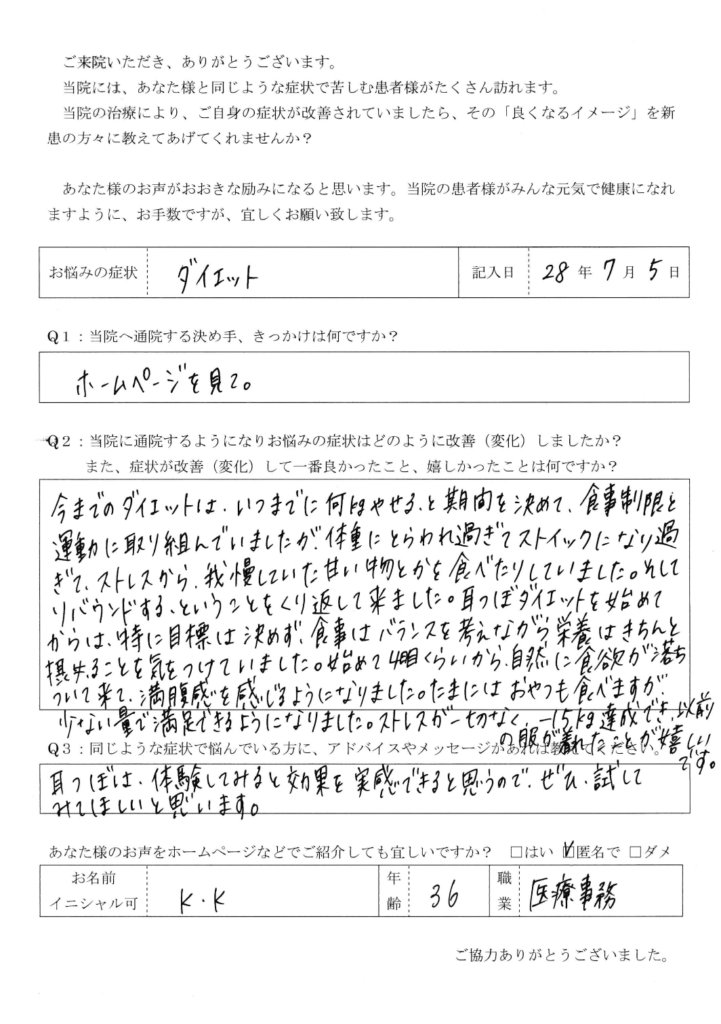 ご来院いただき、ありがとうございます。
当院には、あなた様と同じような症状で苦しむ患者様がたくさん訪れます。
当院の治療により、ご自身の症状が改善されていましたら、その「良くなるイメージ」を新
患の方々に教えてあげてくれませんか？
あなた様のお声がおおきな励みになると思います。当院の患者様がみんな元気で健康になれ
ますように、お手数ですが、宜しくお願い致します。
お悩みの症状 ダイエット 記入日 28年7月5日
Q1：当院へ通院する決め手、きっかけは何ですか？
ホームページを見て。
Q2：当院に通院するようになりお悩みの症状はどのように改善（変化）しましたか？
また、症状が改善（変化）して一番良かったこと、嬉しかったことは何ですか？
今までのダイエットは、いつまでに何kgやせる、と期間を決めて、食事制限と
運動に取り組んでいましたが、体重にとらわれ過ぎてストイックになり過
ぎて、ストレスから、我慢していた甘い物とかを食べたりしていました。そして
リバウンドする、ということをくり返して来ました。耳つぼダイエットを始めて
からは、特に目標は決めず、食事はバランスを考えながら栄養はきちんと
摂れることを気をつけていました。始めて4日目くらいから、自然に食欲が落ち
ついて来て、満腹感を感じるようになりました。たまにはおやつも食べますが、
少ない量で満足できるようになりました。ストレスが一切なく、−15kg達成でき、以前
の服が着れたことが嬉しい
です。
Q3：同じような症状で悩んでいる方に、アドバイスやメッセージがあれば教えてください。
耳つぼは、体験してみると効果を実感できると思うので、ぜひ、試して
みてほしいと思います。
あなた様のお声をホームページなどでご紹介しても宜しいですか？ □はい ☑匿名で □ダメ
お名前 イニシャル可 K.K 年齢 36 職業 医療事務
ご協力ありがとうございました。